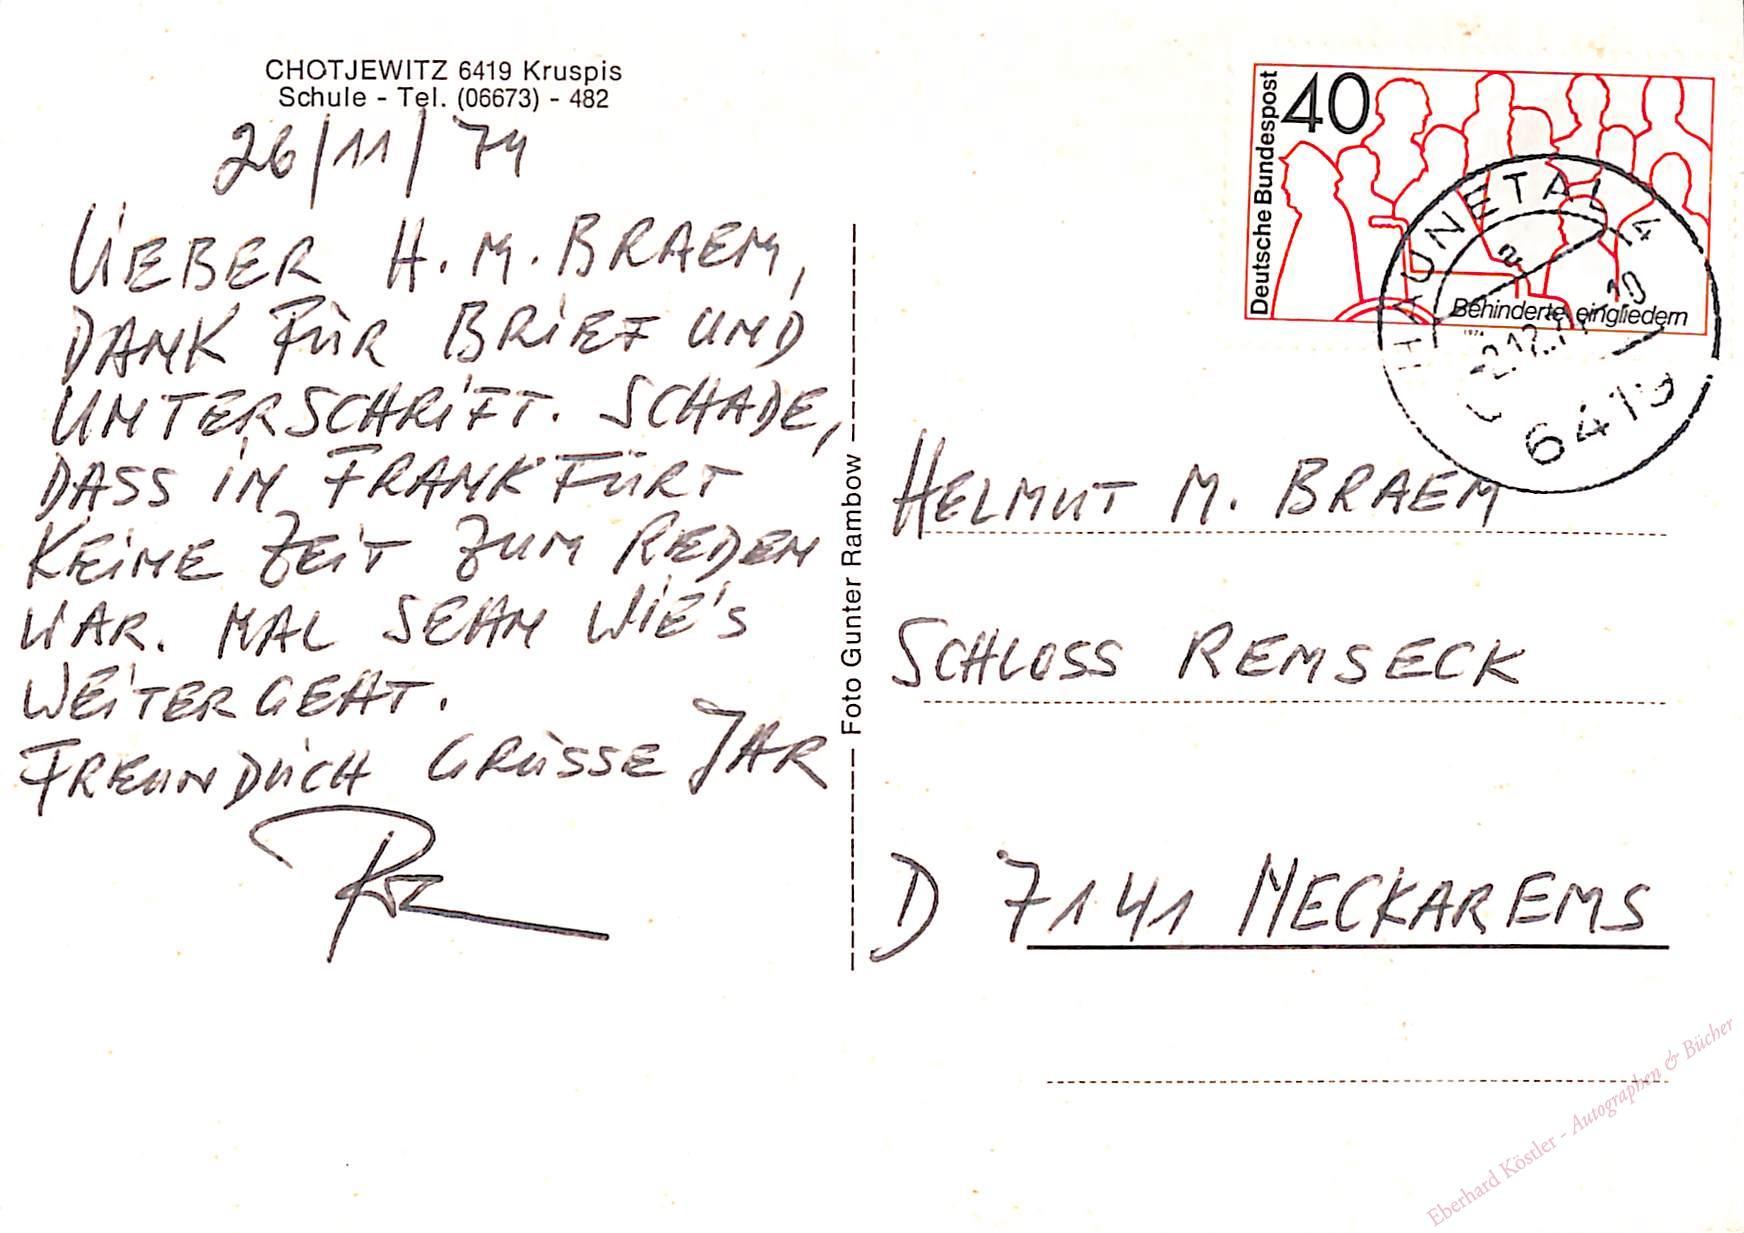 CHOTJEWITZ 6419 Kruspis
Schule - Tel. (06673) - 482
26/11/74
LIEBER H. M. BRAEM,
DANK FÜR BRIEF UND
UNTERSCHRIFT. SCHADE,
DASS IN FRANKFURT
KEINE ZEIT ZUM REDEN
WAR. MAL SEHN WIE'S
WEITERGEHT.
FREUNDLICH GRÜSSE IHR
Foto Gunter Rambow
Deutsche Bundespost
40
Behinderte eingliedern
1974
HAUNETAL 4
6419
HELMUT M. BRAEM
SCHLOSS REMSECK
D 7141 NECKAREMS
Eberhard Köstler - Autographen & Bücher